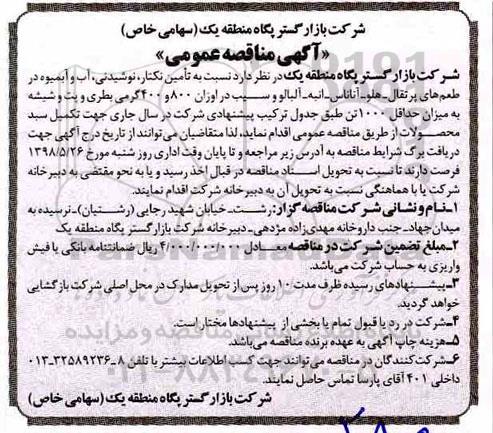 شرکت بازار گستر پگاه منطقه یک (سهامی خاص)
«آگهی مناقصه عمومی»
شرکت بازار گستر پگاه منطقه یک در نظر دارد نسبت به تأمین نکتار، نوشیدنی، آب و آبمیوه در
طعم‌های پرتقال_هلو_آناناس_انبه_آلبالو و سیب در اوزان ۸۰۰ و ۴۰۰ گرمی بطری و پت و شیشه
به میزان حداقل ۱۰۰۰ تن طبق جدول ترکیب پیشنهادی شرکت در سال جاری جهت تکمیل سبد
محصولات از طریق مناقصه عمومی اقدام نماید، لذا متقاضیان می‌توانند از تاریخ درج آگهی جهت
دریافت برگ شرایط مناقصه به آدرس زیر مراجعه و تا پایان وقت اداری روز شنبه مورخ ۱۳۹۸/۵/۲۶
فرصت دارند تا نسبت به تحویل اسناد مناقصه در قبال اخذ رسید و یا به نحو مقتضی به دبیرخانه
شرکت یا با هماهنگی نسبت به تحویل آن به دبیرخانه شرکت اقدام نمایند.
۱_نام و نشانی شرکت مناقصه گزار: رشت_خیابان شهید رجایی (رشتیان)_نرسیده به
میدان جهاد_جنب داروخانه مهدی‌زاده مژدهی_دبیرخانه شرکت بازار گستر پگاه منطقه یک
۲_مبلغ تضمین شرکت در مناقصه معادل ۴/۰۰۰/۰۰۰/۰۰۰ ریال ضمانتنامه بانکی یا فیش
واریزی به حساب شرکت می‌باشد.
۳_پیشنهادهای رسیده ظرف مدت ۱۰ روز پس از تحویل مدارک در محل اصلی شرکت بازگشایی
خواهد گردید.
۴_شرکت در رد یا قبول تمام یا بخشی از پیشنهادها مختار است.
۵_هزینه چاپ آگهی به عهده برنده مناقصه می‌باشد.
۶_شرکت‌کنندگان در مناقصه می‌توانند جهت کسب اطلاعات بیشتر با تلفن ۸_۳۲۵۸۹۲۳۶_۰۱۳
داخلی ۴۰۱ آقای پارسا تماس حاصل نمایند.
شرکت بازار گستر پگاه منطقه یک (سهامی خاص)